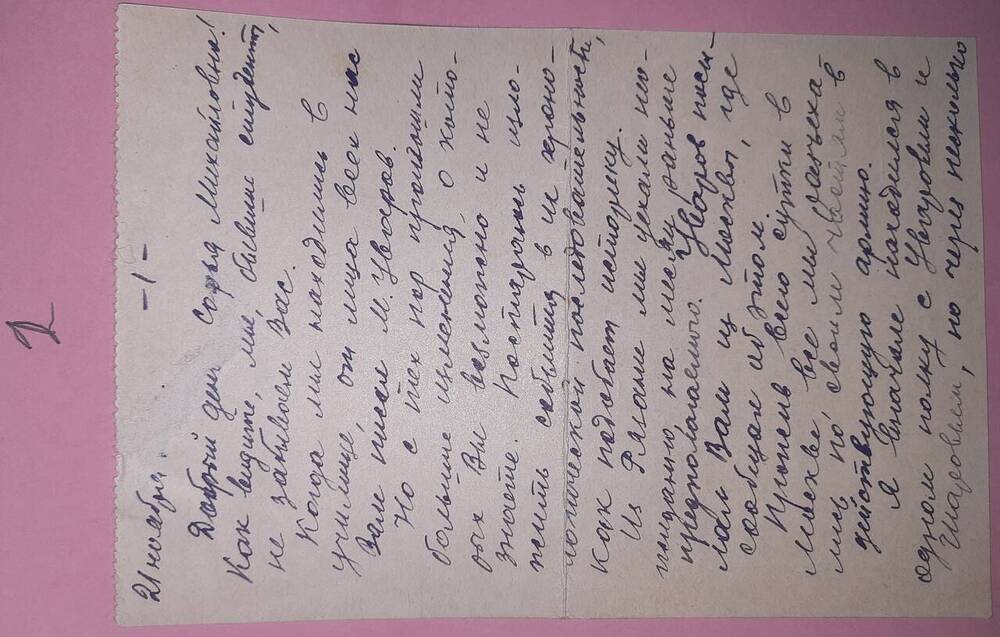 2
21 ноября.
-1-
Добрый день Софья Михайловна!
Как видите, мы, бывшие студенты,
не забываем Вас.
Когда мы находились в
училище, от лица всех нас
Вам писал М. Уваров.
Но с тех пор произошли
большие изменения, о кото-
рых Вы возможно и не
знаете. Постараюсь изло-
жить события в их хроно-
логической последовательности,
как подобает историку.
Из Рязани мы уехали нео-
жиданно, на месяц раньше
предполагаемого. Уваров посы-
лал Вам из Москвы, где
сообщал об этом.
Прожив всего сутки в
Москве, все мы разъеха-
лись по своим частям в
действующую армию.
Я вначале находился в
одном полку с Уваровым и
Шаровым, но через несколько